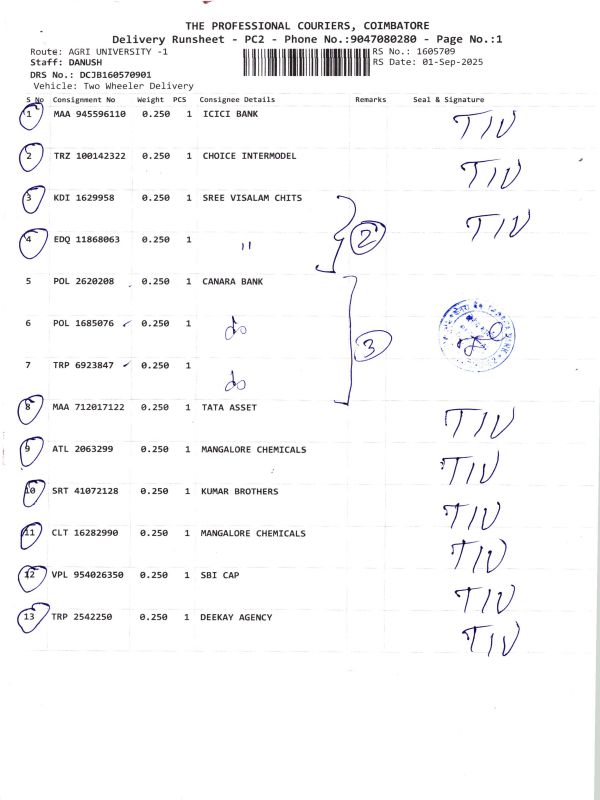 THE PROFESSIONAL COURIERS, COIMBATORE
Delivery Runsheet - PC2 - Phone No.:9047080280 - Page No.:1
Route: AGRI UNIVERSITY -1 RS No.: 1605709
Staff: DANUSH RS Date: 01-Sep-2025
DRS No.: DCJB160570901
Vehicle: Two Wheeler Delivery
S No Consignment No Weight PCS Consignee Details Remarks Seal & Signature
1 MAA 945596110 0.250 1 ICICI BANK TIV
2 TRZ 100142322 0.250 1 CHOICE INTERMODEL TIV
3 KDI 1629958 0.250 1 SREE VISALAM CHITS TIV
4 EDQ 11868063 0.250 1 " 2
5 POL 2620208 0.250 1 CANARA BANK
6 POL 1685076 0.250 1 do 3
7 TRP 6923847 0.250 1 do
8 MAA 712017122 0.250 1 TATA ASSET TIV
9 ATL 2063299 0.250 1 MANGALORE CHEMICALS TIV
10 SRT 41072128 0.250 1 KUMAR BROTHERS TIV
11 CLT 16282990 0.250 1 MANGALORE CHEMICALS TIV
12 VPL 954026350 0.250 1 SBI CAP TIV
13 TRP 2542250 0.250 1 DEEKAY AGENCY TIV